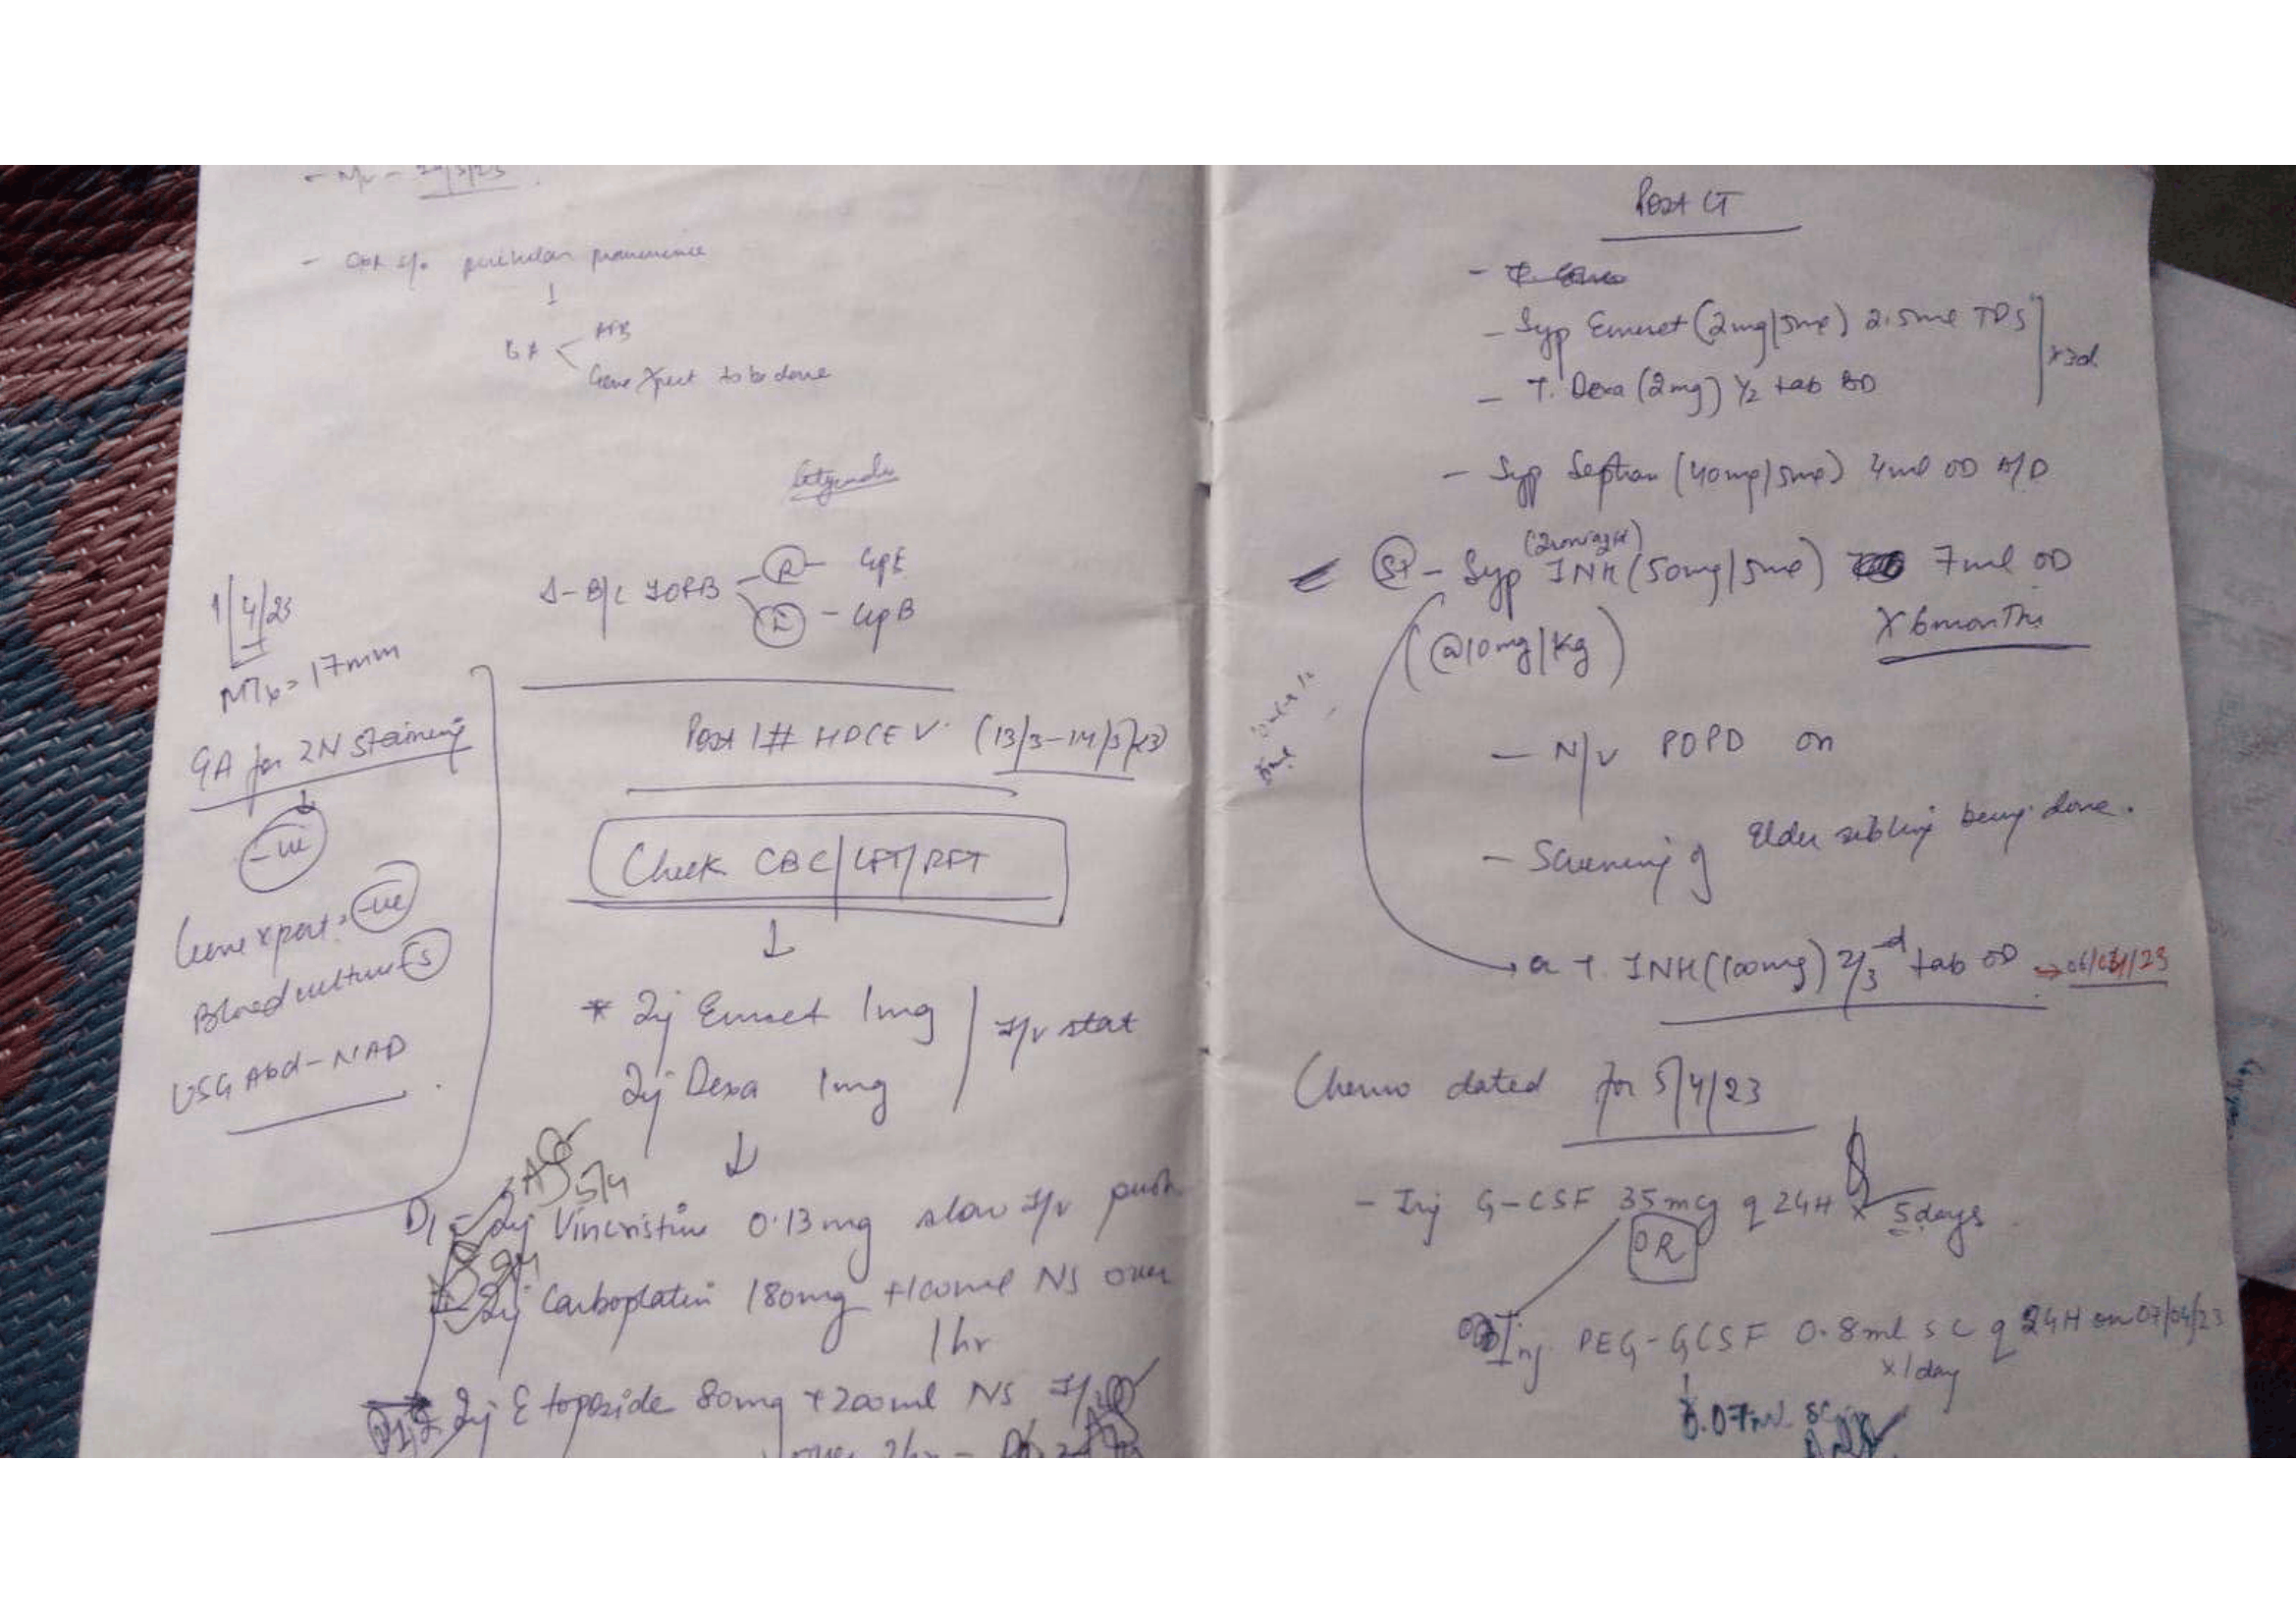 - N/v - 29/3/23
- CXR s/o perihilar prominence
↓
GA < AFB
GeneXpert to be done
Δ - B/L IORB - (R) - Gp E
(L) - Gp B
1/4/23
MTx = 17mm
GA for ZN staining
↓
-ve
Genexpert = -ve
Blood culture - S
USG Abd - NAD
Post 1# HDCEV (13/3-14/3/23)
Check CBC/LFT/RFT
↓
* Inj Emset 1mg
Inj Dexa 1mg
I/v stat
↓
5/4
D1 - Inj Vincristine 0.13mg slow I/v push
- Inj Carboplatin 180mg +100ml NS over
1hr
D1,2 Inj Etoposide 80mg +200ml NS I/v
over 2hr -
Post CT
- Syp Emeset (2mg/5ml) 2.5ml TDS
- T. Dexa (2mg) 1/2 tab BD
x3d
- Syp Septran (40mg/5ml) 4ml OD A/D
St - Syp INH (50mg/5ml) 7ml OD
(@10mg/kg)
X 6months
- N/v POPD on
- Screening of Elder sibling being done.
→ T. INH (100mg) 2/3rd tab OD → 06/04/23
Chemo dated for 5/4/23
- Inj G-CSF 35mcg q 24H x 5days
OR
Inj PEG-GCSF 0.8ml SC q 24H on 07/04/23
x 1day
0.07ml SC